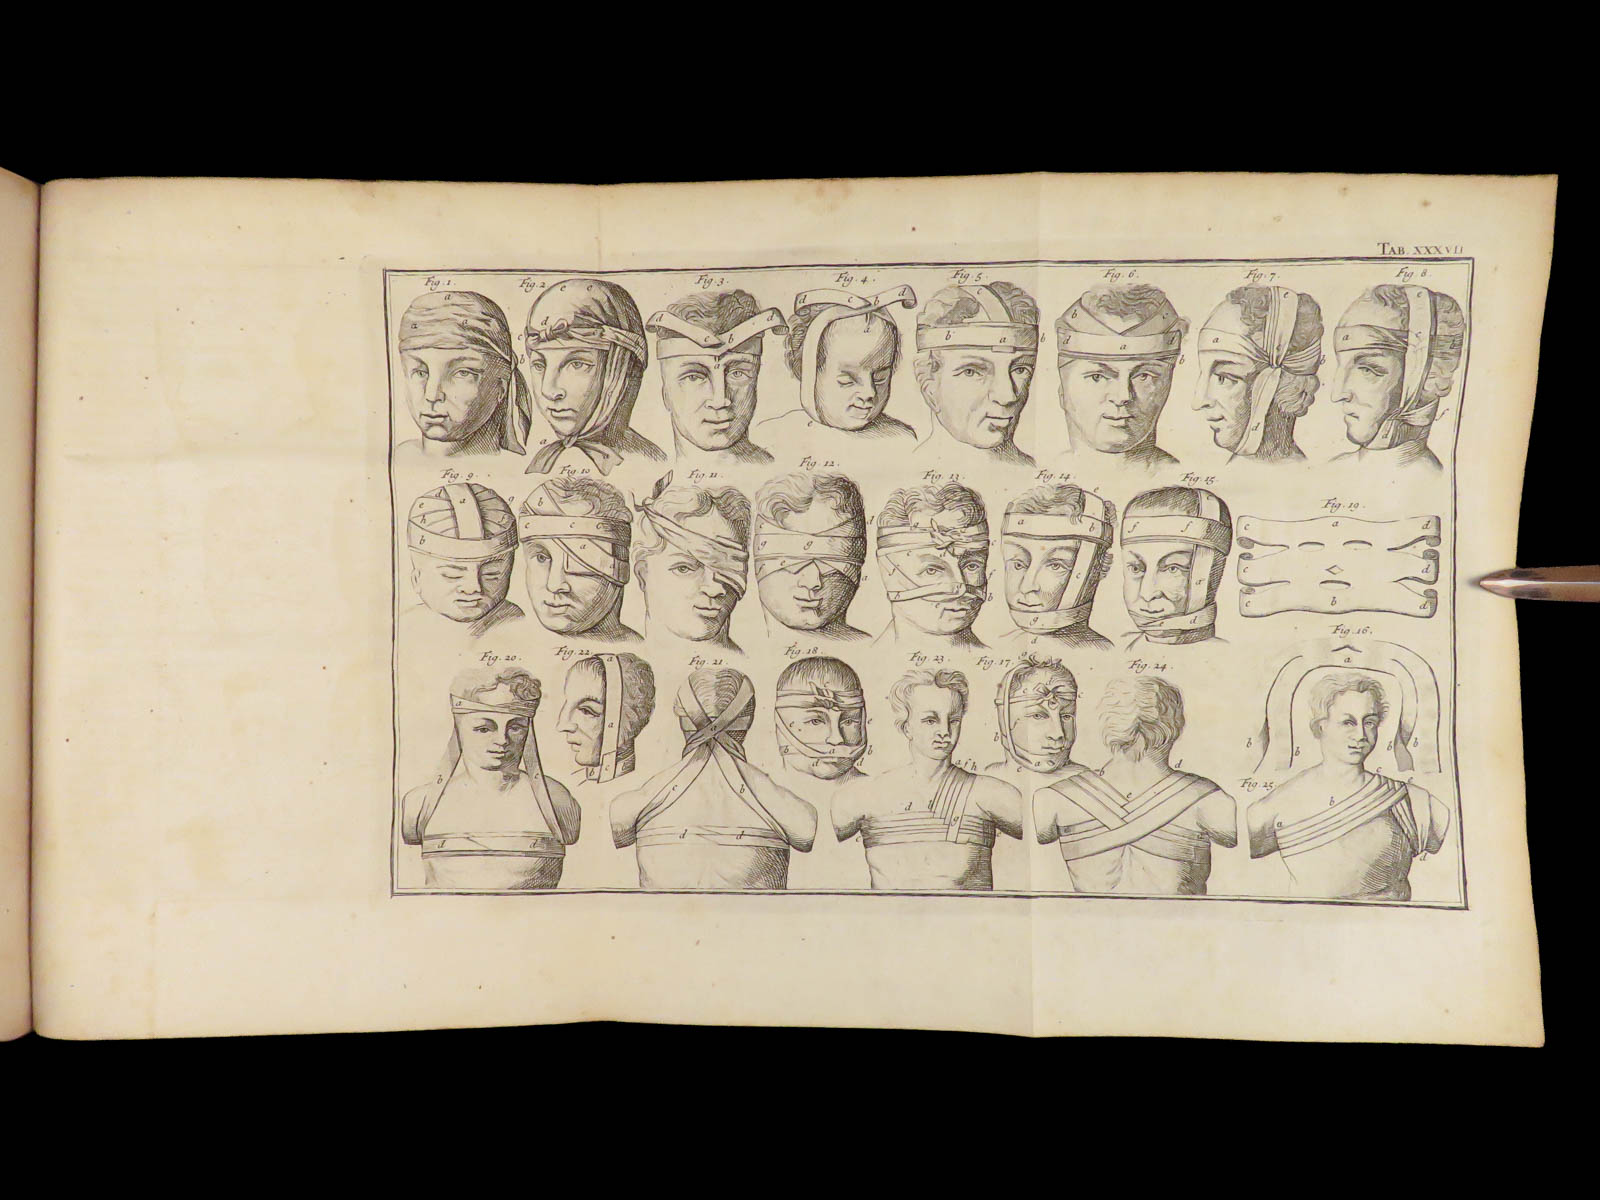 TAB. XXXVII
Fig. 1. Fig. 2 Fig. 3. Fig. 4. Fig. 5. Fig. 6. Fig. 7. Fig. 8.
a e e d c b d c e e
a a d d c c b d a b a b c a a c
b d a d b
a a e d d f
Fig. 9. Fig. 10 Fig. 11. Fig. 12. Fig. 13. Fig. 14. Fig. 15. Fig. 19.
d a g b d g e c a d
e h b c c a g g c a b f f
e f c a c d
b g d c d c b d
Fig. 16.
Fig. 20. Fig. 22. Fig. 21. Fig. 18. Fig. 23. Fig. 17. Fig. 24. a
a a c c c
a e e b b b b
b c b c b a b d d a f h e a b d
Fig. 25.
c b d b e c e
d d d d g a b
a d